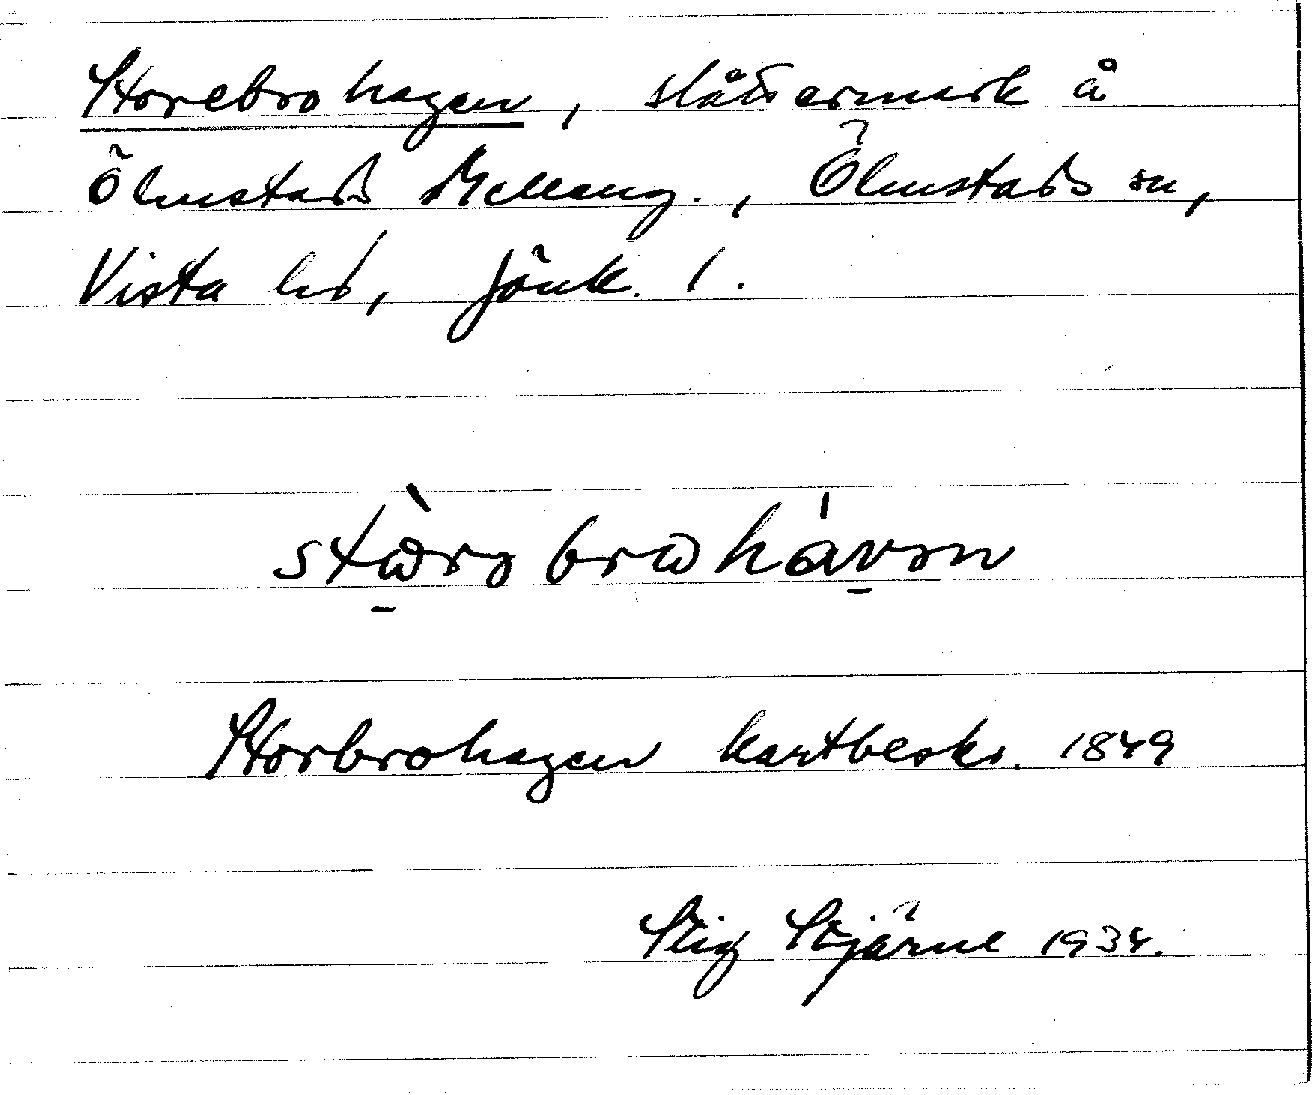 Storebrohagen, slåttermark å
Ölmstads Mellang., Ölmstads sn,
Vista hd, Jönk. l.
Storbrohagen kartbeskr. 1849
Stig Stjärne 1934.